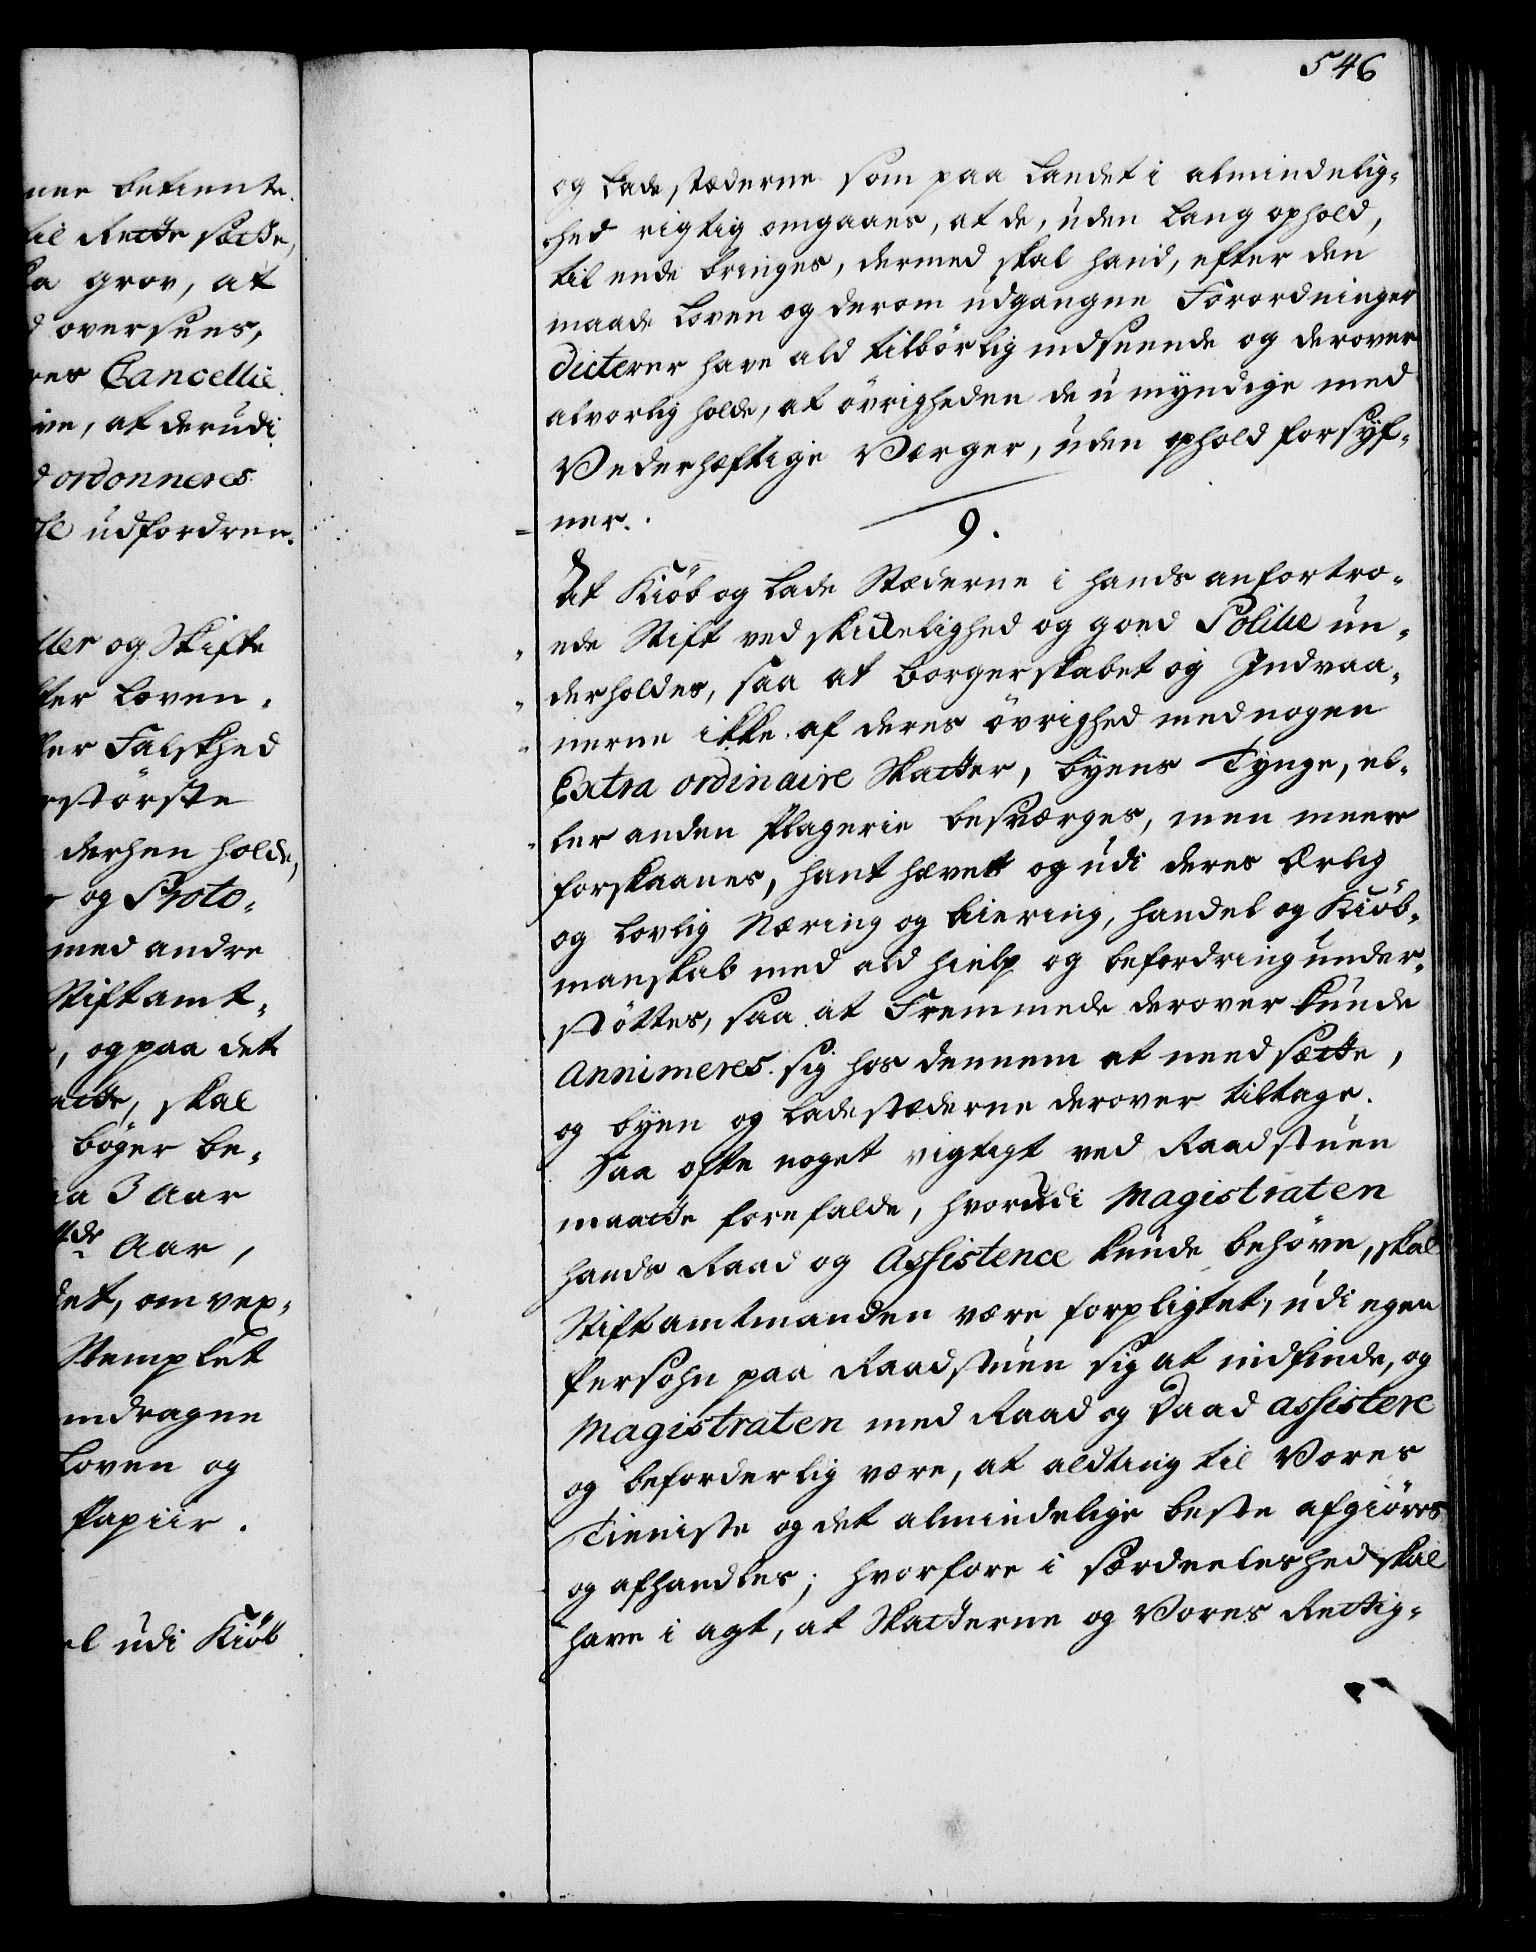 546
nne betiente
til Rette sætte,
saa grov, at
d oversees,
res Cancellie
ive, at derudi
d ordonneres
udfordrer.
ller og Skifte
fter Loven,
ller Falskhed
største
derhen holde,
og Proto-
med andre
Stiftamt-
, og paa det
skal
bøger be-
3 Aar
4de Aar,
det, om vex-
Stemplet
indragne
Loven og
Papiir.
udi Kiöb
og Ladestæderne som paa Landet i almindelig-
hed rigtig omgaaes, at de, uden lang ophold,
til ende bringes, dermed skal hand, efter den
maade Loven og derom udgangne Forordninger
dicterer have ald tilbörlig indseende og derover
alvorlig holde, at övrigheden de umyndige med
Vederhæftige Værger, uden ophold forsÿf-
ner.
9.
At Kiöb og Lade Stæderne i hands anfortro-
ede Stift ved skickelighed og goed Politie un-
derholdes, saa at Borgerskabet og Indvaa-
nerne ikke af deres övrighed med nogen
Extra ordinaire Skatter, byens Tynge, el-
ler anden Plagerie besværges, men meere
forskaanes, hanthævet og udi deres Ærlig
og Lovlig Næring og biering, handel og Kiöb-
manskab med ald hielp og befordring under-
støttes, saa at Fremmede derover kunde
Annimeres sig hos dennem at needsætte,
og byen og Ladestæderne derover tiltage.
Saa ofte noget vigtigt ved Raadstuen
maatte forefalde, hvorudi Magistraten
hands Raad og Assistence kunde behöve, skal
Stiftamtmanden være forpligtet, udi egen
Persohn paa Raadstuen sig at indfinde, og
Magistraten med Raad og Daad assistere
og beforderlig være, at aldting til Vores
Tieniste og det almindelige beste afgiöres
og afhandles; hvorfore i særdeeleshed skal
have i agt, at Skatterne og Vores Rettig-